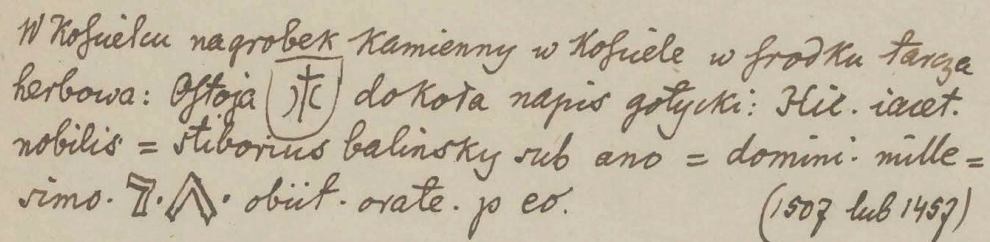 W Kościelcu nagrobek kamienny w kościele w środku tarcza
herbowa: Ostoja dokoła napis gotycki: Hic. iacet.
nobilis = stiborius balinsky sub ano = domini. mille=
simo. 7. Λ. obiit. orate. p eo.
(1507 lub 1457)